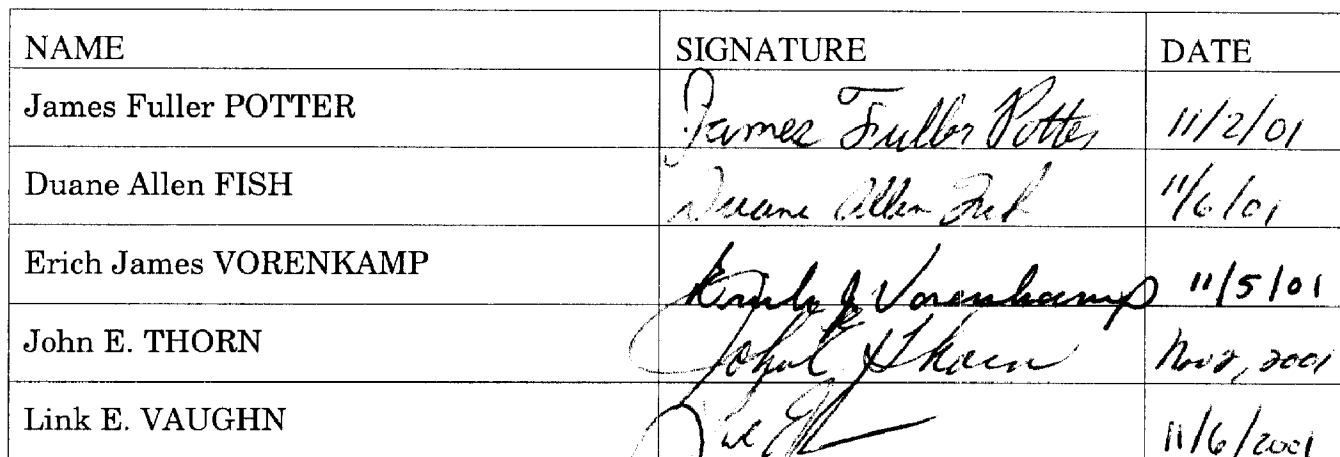 NAME SIGNATURE DATE
James Fuller POTTER James Fuller Potter 11/2/01
Duane Allen FISH Duane Allen Fish 11/6/01
Erich James VORENKAMP Erich J Vorenkamp 11/5/01
John E. THORN John E Thorn Nov 2, 2001
Link E. VAUGHN 11/6/2001